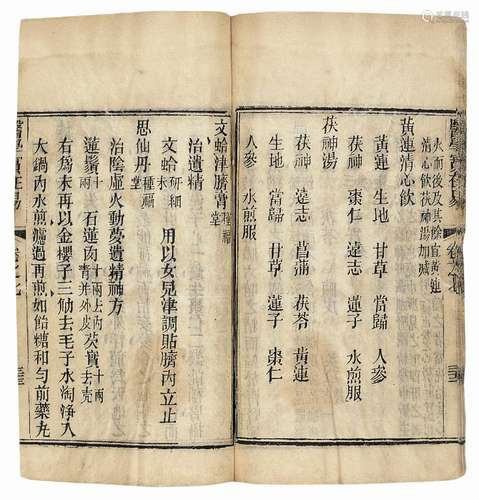 醫學實在易 卷之七
火而後及其餘宜黃連
清心飲茯神湯加減
黃連清心飲
黃連 生地 甘草 當歸 人參
茯神 棗仁 遠志 蓮子 水煎服
茯神湯
茯神 遠志 菖蒲 茯苓 黃連
生地 當歸 甘草 蓮子 棗仁
人參 水煎服
文蛤津臍膏 種福堂
治遺精
文蛤 研細末 用以女兒津調貼臍內立止
思仙丹 種福堂
治陰虛火動夢遺精神方
蓮鬚 十兩 石蓮肉 十兩去內青並外皮 芡實 十兩去殼
右為末再以金櫻子三觔去毛子水淘淨入
大鍋內水煎濾過再煎如飴糖和勻前藥丸
醫學實在易 卷之七